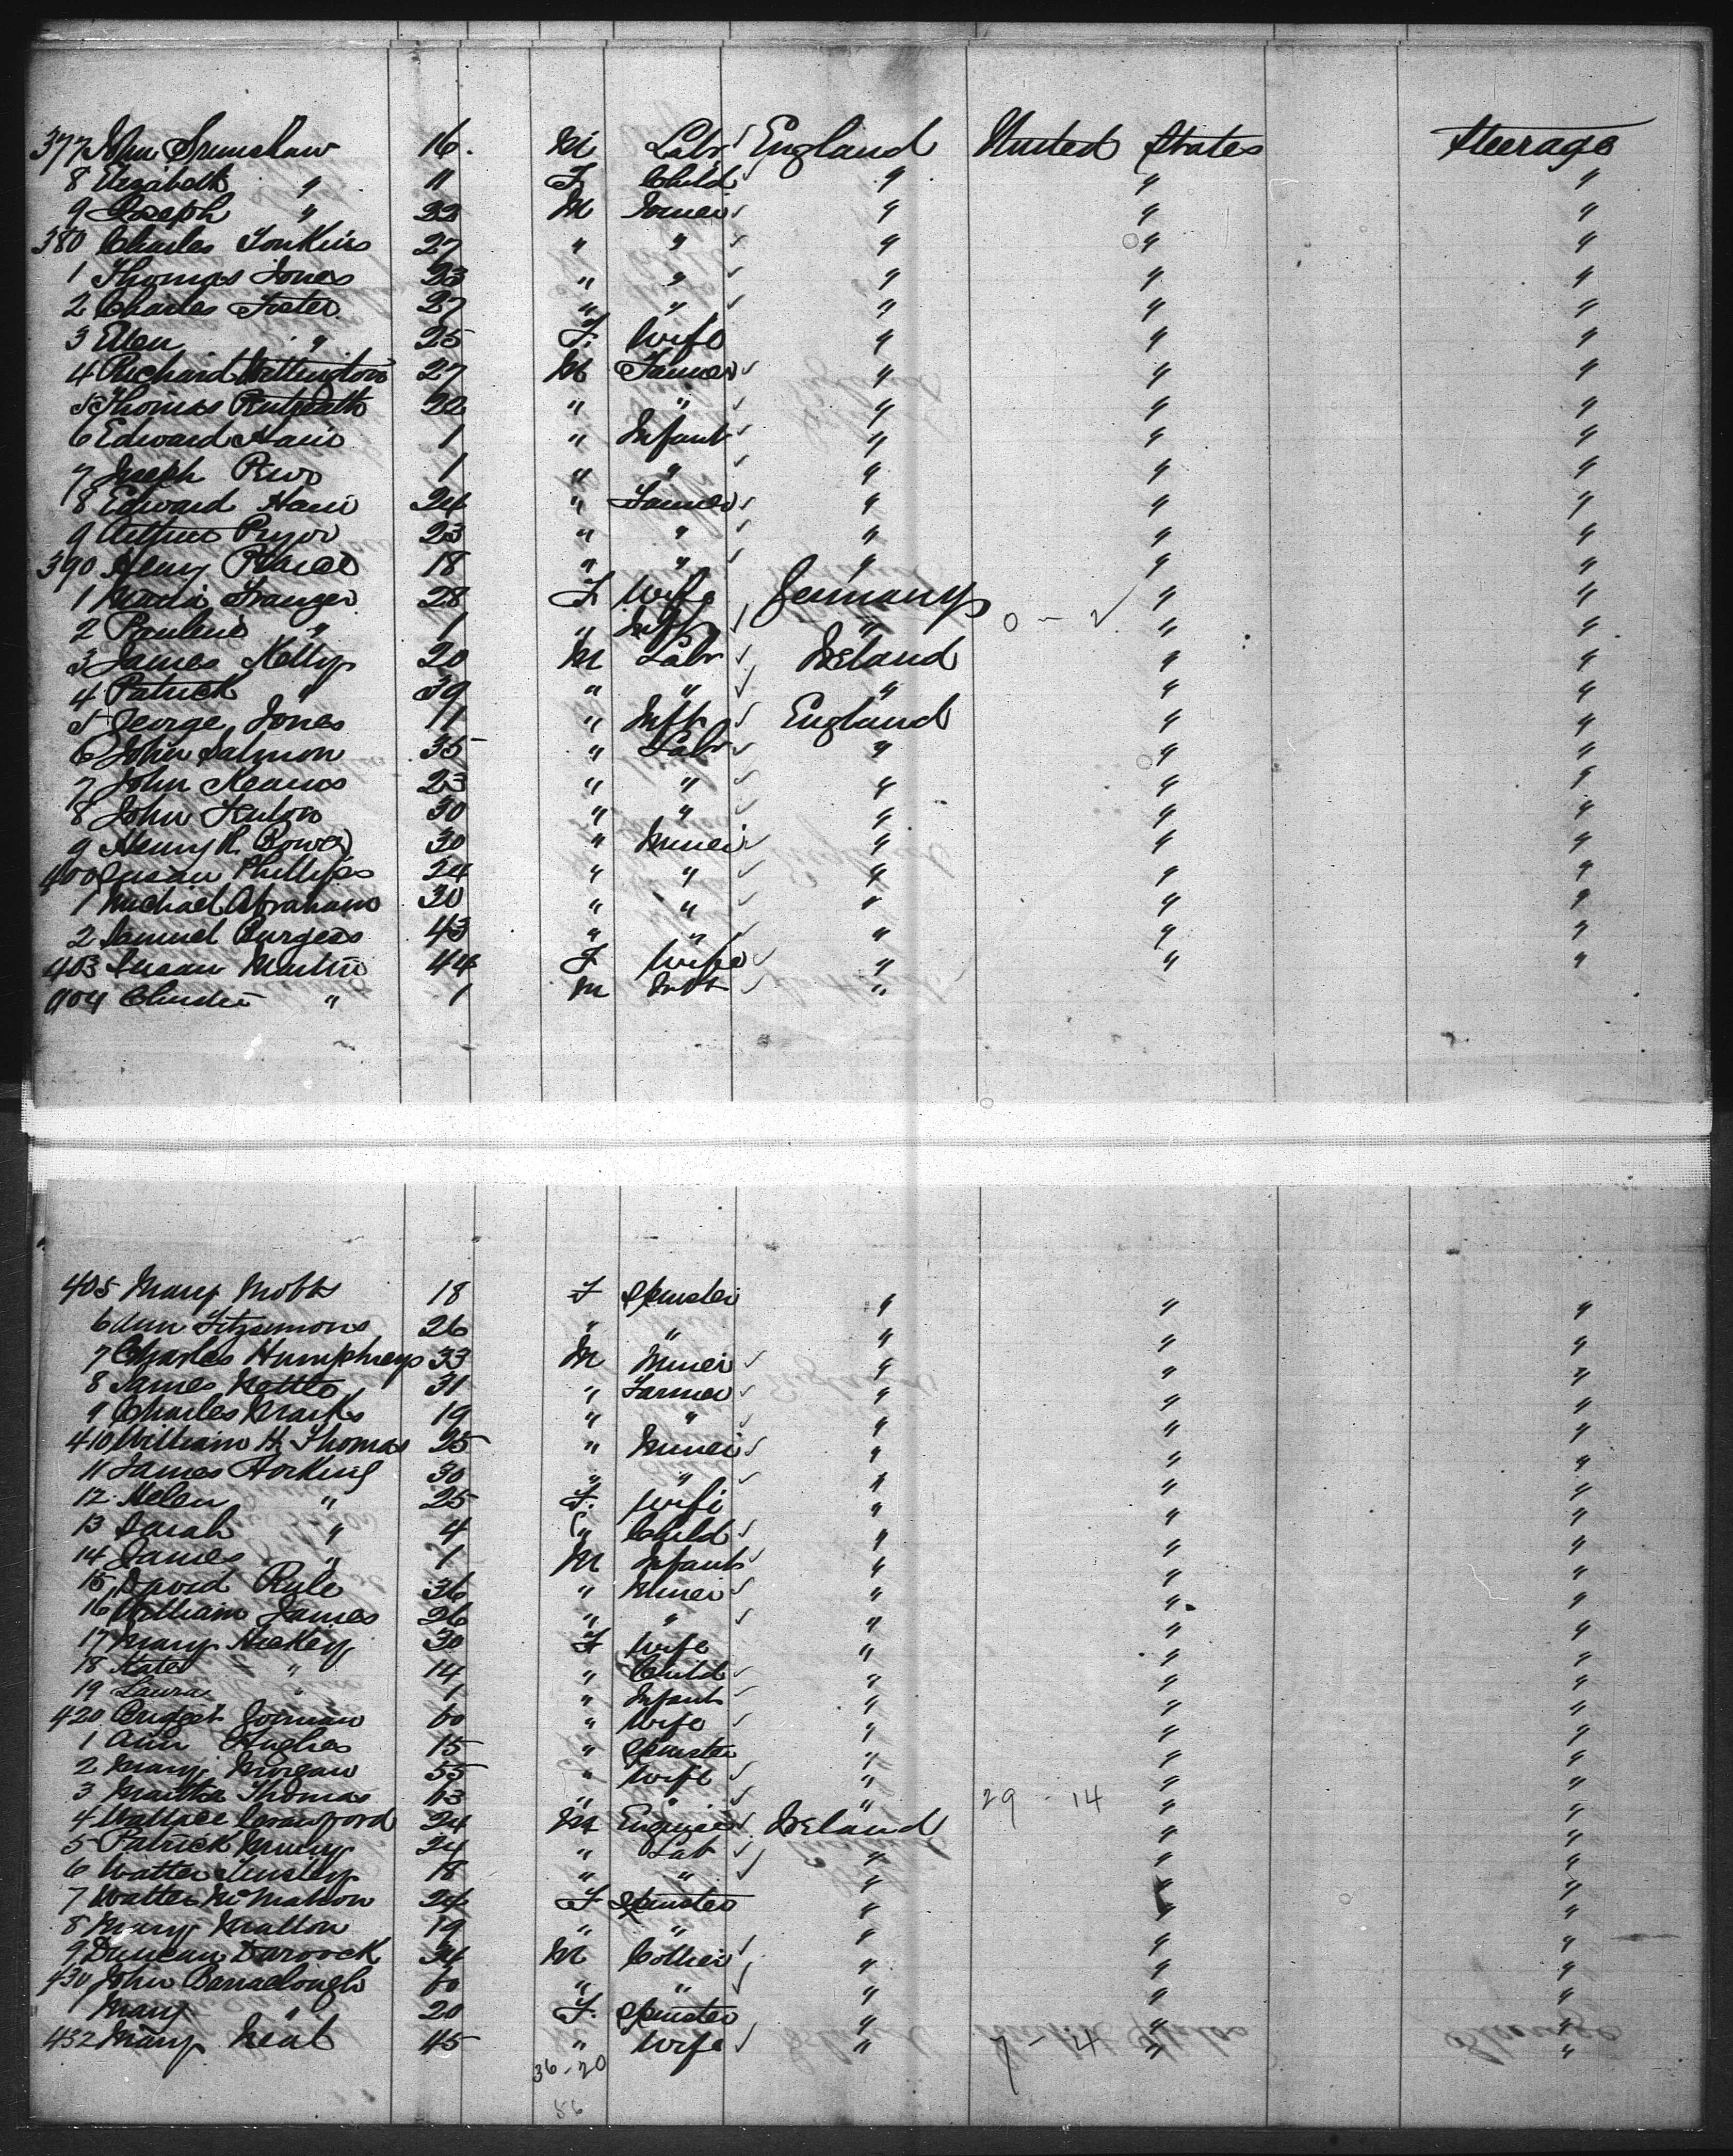 377 John Grimshaw 16. M Labr England United States Steerage
8 Elizabeth " 11 F Child " " "
9 Joseph " 22 M " " "
380 Charles Jonkins 27 " " " " "
1 Thomas Jones 23 " " " " "
2 Charles Foster 27 " " " " "
3 Ellen " 25 F. Wife " " "
4 Richard Wellington 27 M Farmer " " "
5 Thomas 22 " " " " "
6 Edward Harris 1 " Infant " " "
7 Joseph 1 " " " " "
8 Edward Harris 24 " Farmer " " "
9 Arthur Pryor 23 " " " " "
390 Henry Pearce 18 " " " " "
1 Maria Franzer 28 F Wife Germany "
2 Pauline " 1 " Inft " 0 - 2 " "
3 James Kelly 20 M Labr Ireland " "
4 Patrick " 39 " " " " "
5 George Jones 11 " Inft England " "
6 John Salmon 35 " Labr " " "
7 John Kearns 23 " " " " "
8 John Fenton 30 " " " " "
9 Henry R. 30 " Miner " " "
400 Susan Phillips 24 " " " " "
1 Michael Abraham 30 " " " " "
2 Samuel Burgess 43 " " " " "
403 Susan Martin 44 F Wife " " "
404 " 1 M Inft "
405 Mary Mobbs 18 F Spinster " " "
6 Ann Fitzsimons 26 " " " " "
7 Charles Humphreys 33 M Miner " " "
8 James Nettle 31 " Farmer " " "
9 Charles Marks 19 " " " " "
410 William H. Thomas 25 " Miner " " "
11 James Hocking 30 " " " " "
12 Helen " 25 F. Wife " " "
13 Sarah " 4 " Child " " "
14 James " 1 M Infant " " "
15 David Rule 36 " Miner " " "
16 William James 26 " " " " "
17 Mary Hickey 30 F Wife " " "
18 Kate " 14 " Child " " "
19 Laura " 1 " Infant " " "
420 Bridget Gorman 60 " Wife " " "
1 Ann Hughes 15 " Spinster " " "
2 Mary Morgan 55 " Wife " " "
3 Martha Thomas 63 " " " 29 - 14 " "
4 Wallace Crawford 24 M Engineer Ireland " "
5 Patrick 24 " Lab " " "
6 Walter Tinsley 18 " " " " "
7 Walter McMahon 24 F Spinster " " "
8 Mary Mallon 19 " " " " "
9 Duncan Darrock 34 M Collier " " "
430 John Barraclough 60 " " " " "
Mary " 20 F. Spinster " " "
432 Mary Neal 45 " Wife " 7 - 14 " "
36-20
56